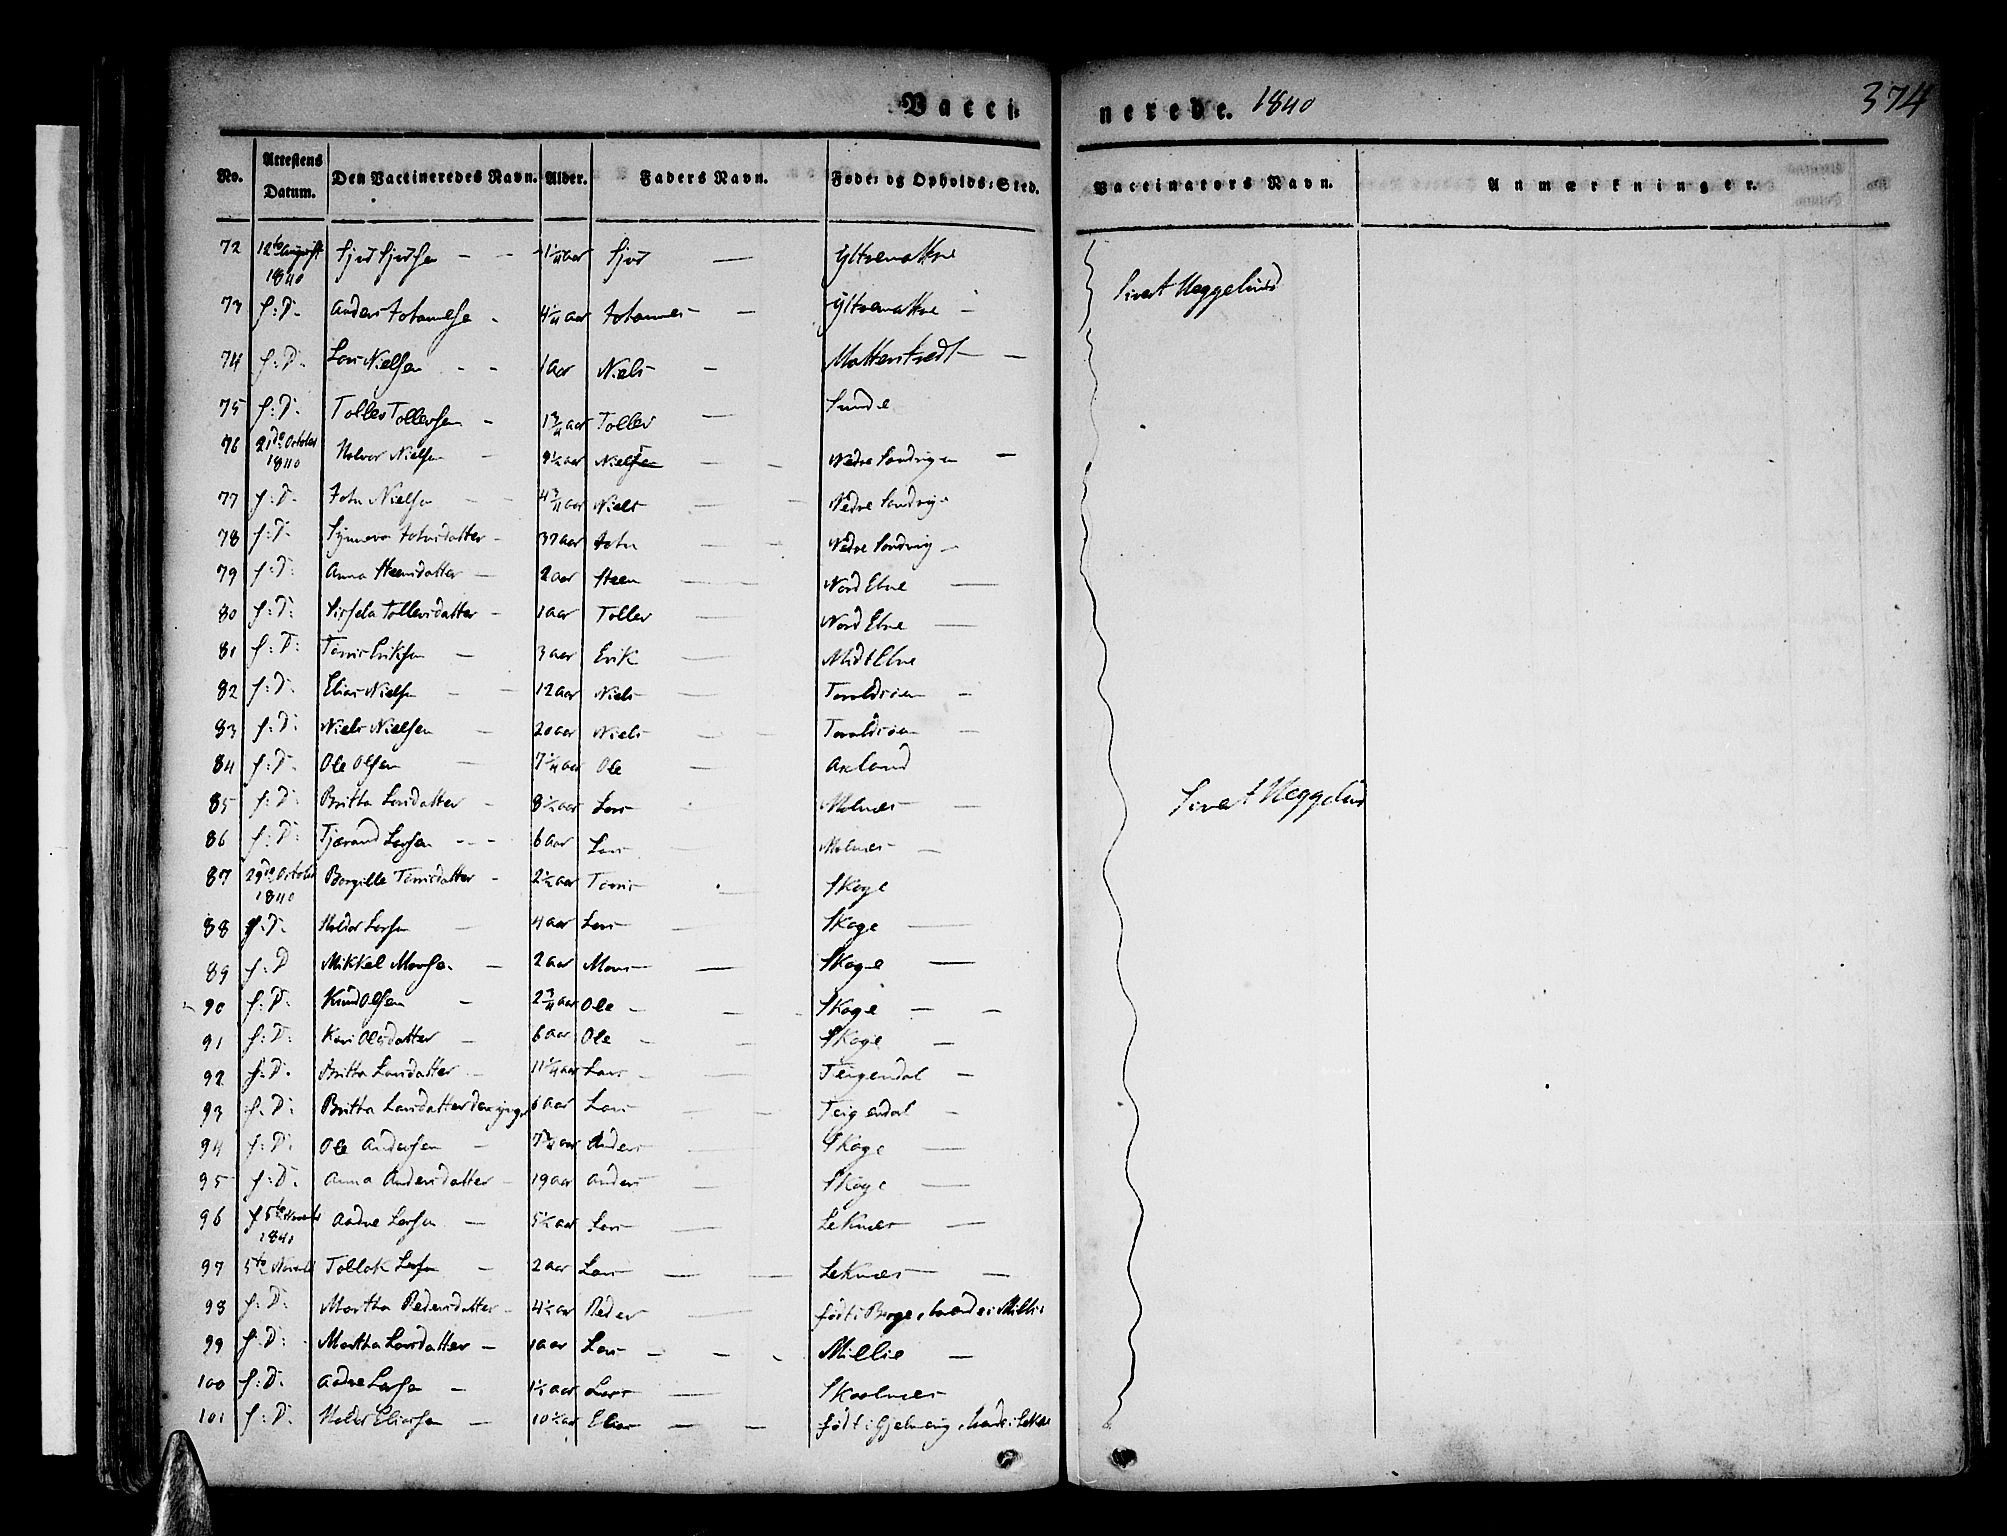 Vacci-
nerede. 1840
374
No.
Attestens Datum.
Den Vaccineredes Navn.
Alder.
Faders Navn.
Føde- og Opholds-Sted.
Vaccinators Navn.
Anmærkninger.
72 12te August 1840 Sjur Sjursen — — 1 1/4 aar Sjur — Yttremattre
Sivert Heggelund
73 f: D. Anders Johannesen 4 1/4 aar Johannes — — Yttremattre —
74 f: D. Lars Nielsen — — 1 aar Niels — —
75 f: D. Tollev Tollevsen — 1 3/4 aar Tollev — Sunde
76 21de October 1840 Halvor Nielsen — 9 1/2 aar Nielsen — — Nedre Sandvigen —
77 f: D. John Nielsen — — 4 3/4 aar Niels — — Nedre Sandvig
78 f: D. Synneva Johnsdatter — 37 aar John — — Nedre Sandvig —
79 f: D. Anna Steensdatter — 2 aar Steen — — Nord Etne —
80 f: D: Sisela Tollevsdatter — 1 aar Tollev — Nord Etne —
81 f: D: Tønnes Eriksen — 3 aar Erik — Midt Etne
82 f: D. Elias Nielsen — — 12 aar Niels — Toraldsøen —
83 f: D. Niels Nielsen — 20 aar Niels — — Toraldsøen —
84 f: D. Ole Olsen — 7 1/4 aar Ole — Axland
85 f: D: Britta Larsdatter — 8 1/2 aar Lars Molnes —
Sivert Heggelund
86 f: D: Tjærand Larsen — — — 6 aar Lars Molnes —
87 29de October 1840 Borgille Tønnesdatter — 2 1/2 aar Tønnes — Skoge
88 f. D. Haldor Larsen — 4 aar Lars — Skoge —
89 f: D Mikkel Monsen — 2 aar Mons — Skoge —
90 f: D. Knud Olsen — 2 3/4 aar Ole — — Skoge — —
91 f: D: Kari Olsdatter — 6 aar Ole — — Skoge —
92 f: D. Britta Larsdatter — 11 1/4 aar Lars — Teigendal —
93 f: D: Britta Larsdatter den yngre 6 aar Lars — — Teigendal —
94 f: D: Ole Andersen — 7 3/4 aar Anders — Skoge —
95 f: D. Anna Andersdatter — 19 aar Anders — Skoge —
96 5te November 1840 Aadne Larsen — 5 1/2 aar Lars — Leknes —
97 5te Novemb Tollak Larsen — 2 aar Lars — — Leknes —
98 f: D: Martha Pedersdatter — 4 1/2 aar Peder — født i Berge, boende i Millie
99 f: D: Martha Larsdatter — 1 aar Lars — — Millie —
100 f: D. Aadne Larsen — 1 1/2 aar Lars — Skaalnes
101 f: D. Haldor Eliassen — 10 1/2 aar Elias — — født i Gjelmervig, boende i Lekn